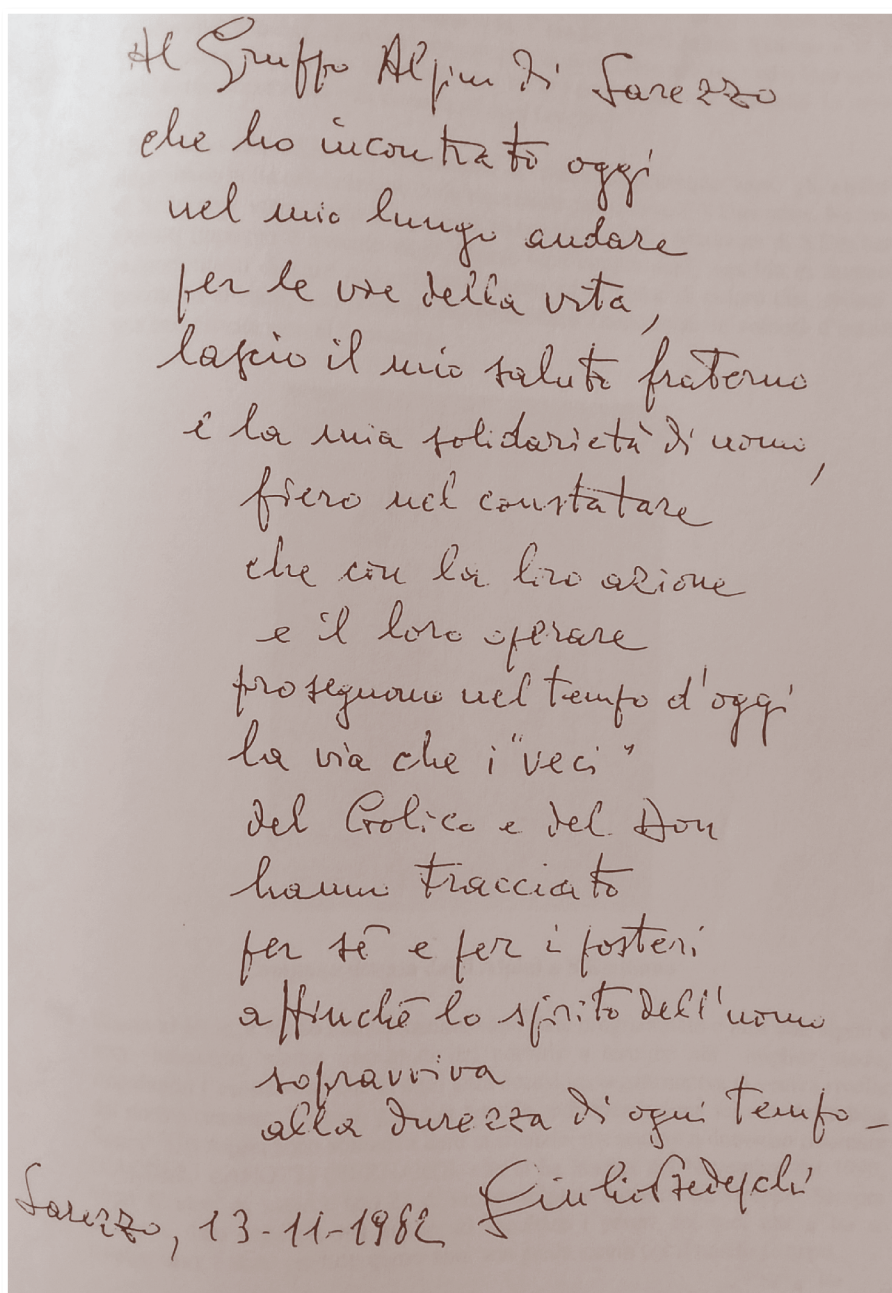 Al Gruppo Alpini di Sarezzo
che ho incontrato oggi
nel mio lungo andare
per le vie della vita,
lascio il mio saluto fraterno
e la mia solidarietà di uomo,
fiero nel constatare
che con la loro azione
e il loro operare
proseguono nel tempo d'oggi
la via che i "veci"
del Golico e del Don
hanno tracciato
per sé e per i posteri
affinché lo spirito dell'uomo
sopravviva
alla durezza di ogni tempo -
Giulio Bedeschi
Sarezzo, 13-11-1982